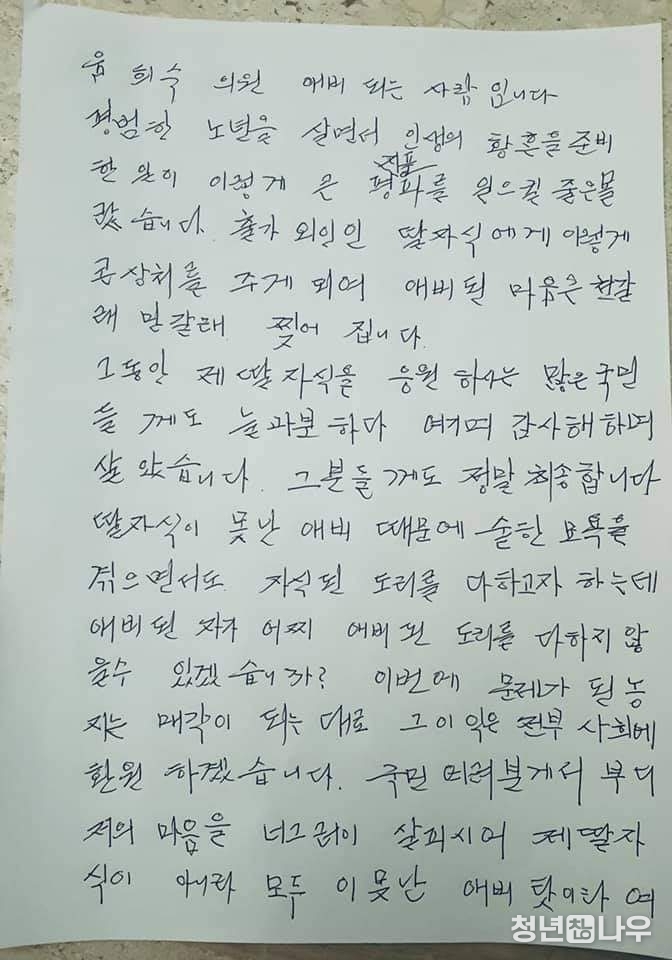 윤 희숙 의원 애비 되는 사람 입니다
평범한 노년을 살면서 인생의 황혼을 준비
지표
한 일이 이렇게 큰 평파를 일으킬 줄은몰
랐 습니다. 출가 외인인 딸자식에게 이렇게
큰상처를 주게 되여 애비된 마음은 천갈
래 만갈래 찢어 집니다.
그동안 제 딸 자식을 응원 하시는 많은 국민
들 께도 늘과분 하다 여기며 감사해하며
살 았습니다. 그분들 께도 정말 죄송합니다
딸자식이 못난 애비 때문에 숱한 모욕을
겪으면서도 자식된 도리를 다하고자 하는데
애비된 자가 어찌 애비된 도리를 다하지 않
을수 있겠습니까? 이번에 문제가 된 농
지는 매각이 되는 대로 그 이익은 전부 사회에
환원 하겠습니다. 국민 여러분께서 부디
저의 마음을 너그러이 살피시어 제딸자
식이 아니라 모두 이 못난 애비 탓이라 여
청년창나우